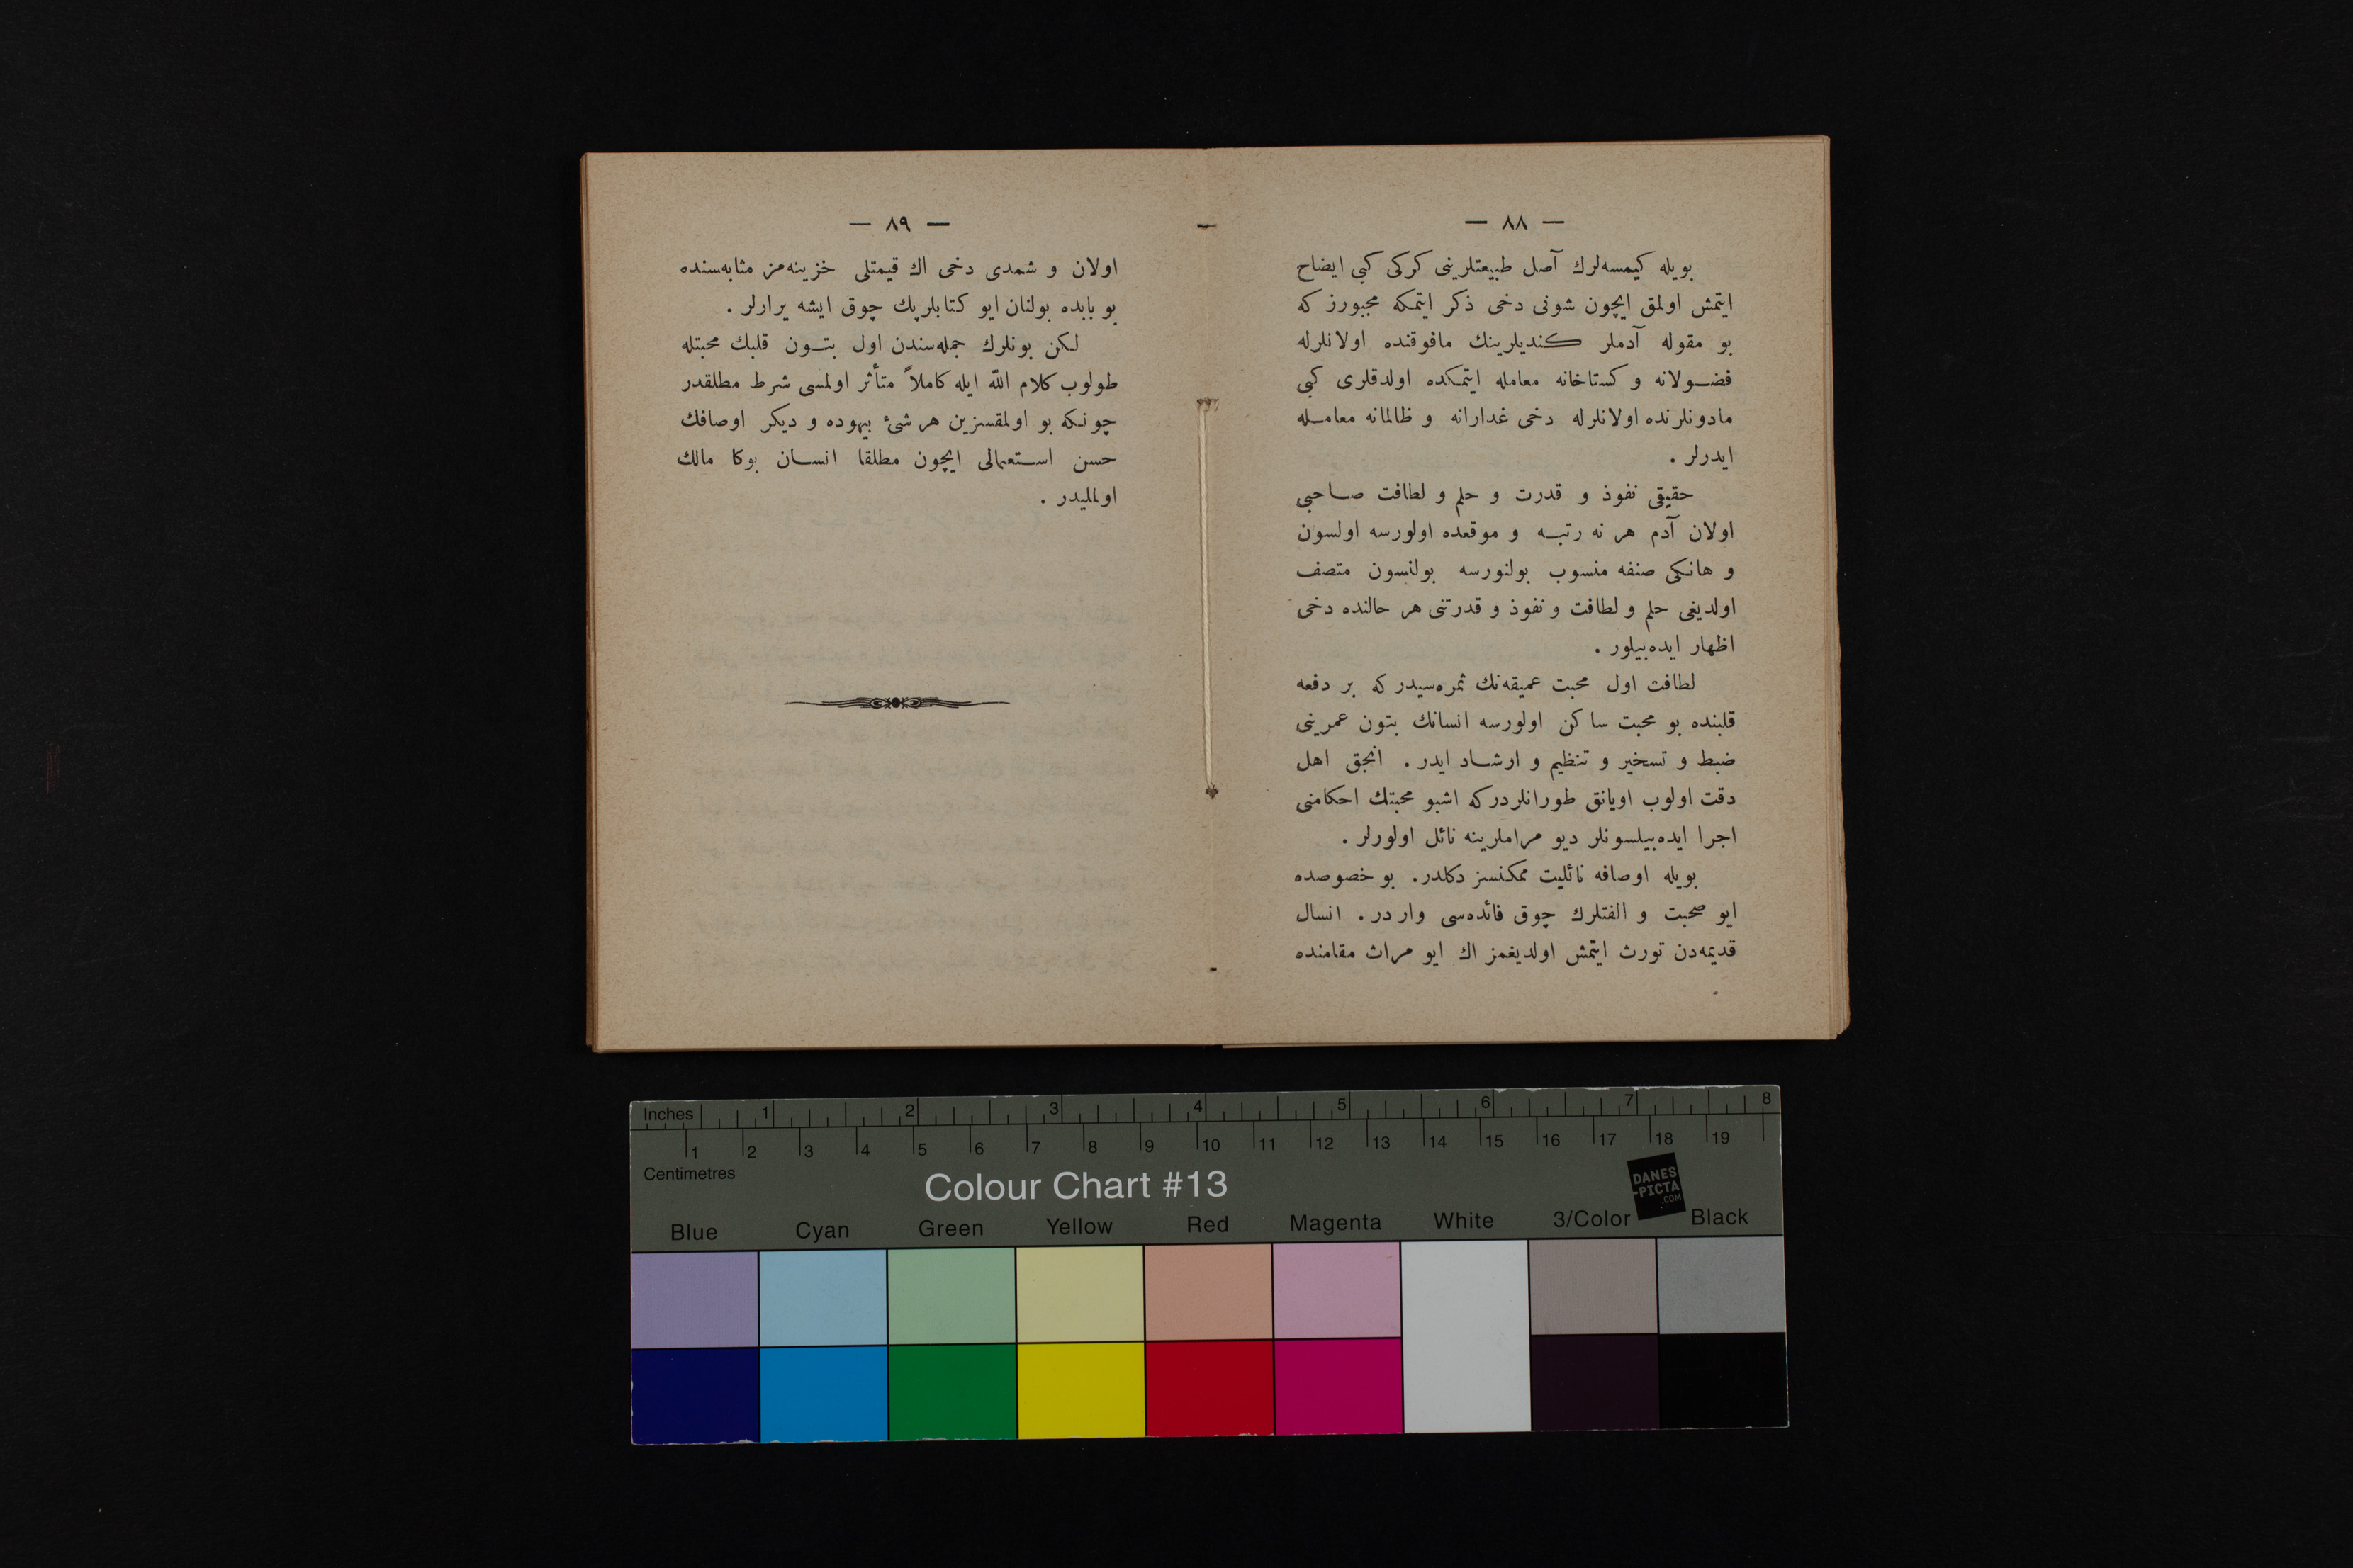 — ٨٨ —
بویله کیمسه‌لرك آصل طبیعتلرینی کرکی کبی ایضاح
ایتمش اولمق ایچون شونی دخی ذکر ایتمکه مجبورز که
بو مقوله آدملر کندیلرینك مافوقنده اولانلرله
فضولانه و کستاخانه معامله ایتمکده اولدقلری کبی
مادونلرنده اولانلرله دخی غدارانه و ظالمانه معامله
ایدرلر .
حقیقی نفوذ و قدرت و حلم و لطافت صاحبی
اولان آدم هر نه رتبه و موقعده اولورسه اولسون
و هانکی صنفه منسوب بولنورسه بولنسون متصف
اولدیغی حلم و لطافت و نفوذ و قدرتنی هر حالنده دخی
اظهار ایده‌بیلور .
لطافت اول محبت عمیقه‌نك ثمره‌سیدر که بر دفعه
قلبنده بو محبت ساکن اولورسه انسانك بتون عمرینی
ضبط و تسخیر و تنظیم و ارشاد ایدر . انجق اهل
دقت اولوب اویانق طورانلردر که اشبو محبتك احکامنی
اجرا ایده‌بیلسونلر دیو مراملرینه نائل اولورلر .
بویله اوصافه نائلیت ممکنسز دکلدر. بو خصوصده
ایو صحبت و الفتلرك چوق فائده‌سی واردر . انسال
قدیمه‌دن تورث ایتمش اولدیغمز اك ایو مراث مقامنده
— ٨٩ —
اولان و شمدی دخی اك قیمتلی خزینه‌مز مثابه‌سنده
بو بابده بولنان ایو کتابلر پك چوق ایشه یرارلر .
لکن بونلرك جمله‌سندن اول بتون قلبك محبتله
طولوب کلام الله ایله کاملاً متأثر اولمسی شرط مطلقدر
چونکه بو اولمقسزین هر شئ بیهوده و دیکر اوصافك
حسن استعمالی ایچون مطلقا انسان بوکا مالك
اولملیدر .
Inches 1 2 3 4 5 6 7 8
1 2 3 4 5 6 7 8 9 10 11 12 13 14 15 16 17 18 19
Centimetres
Colour Chart #13
DANES
-PICTA
.COM
Blue Cyan Green Yellow Red Magenta White 3/Color Black